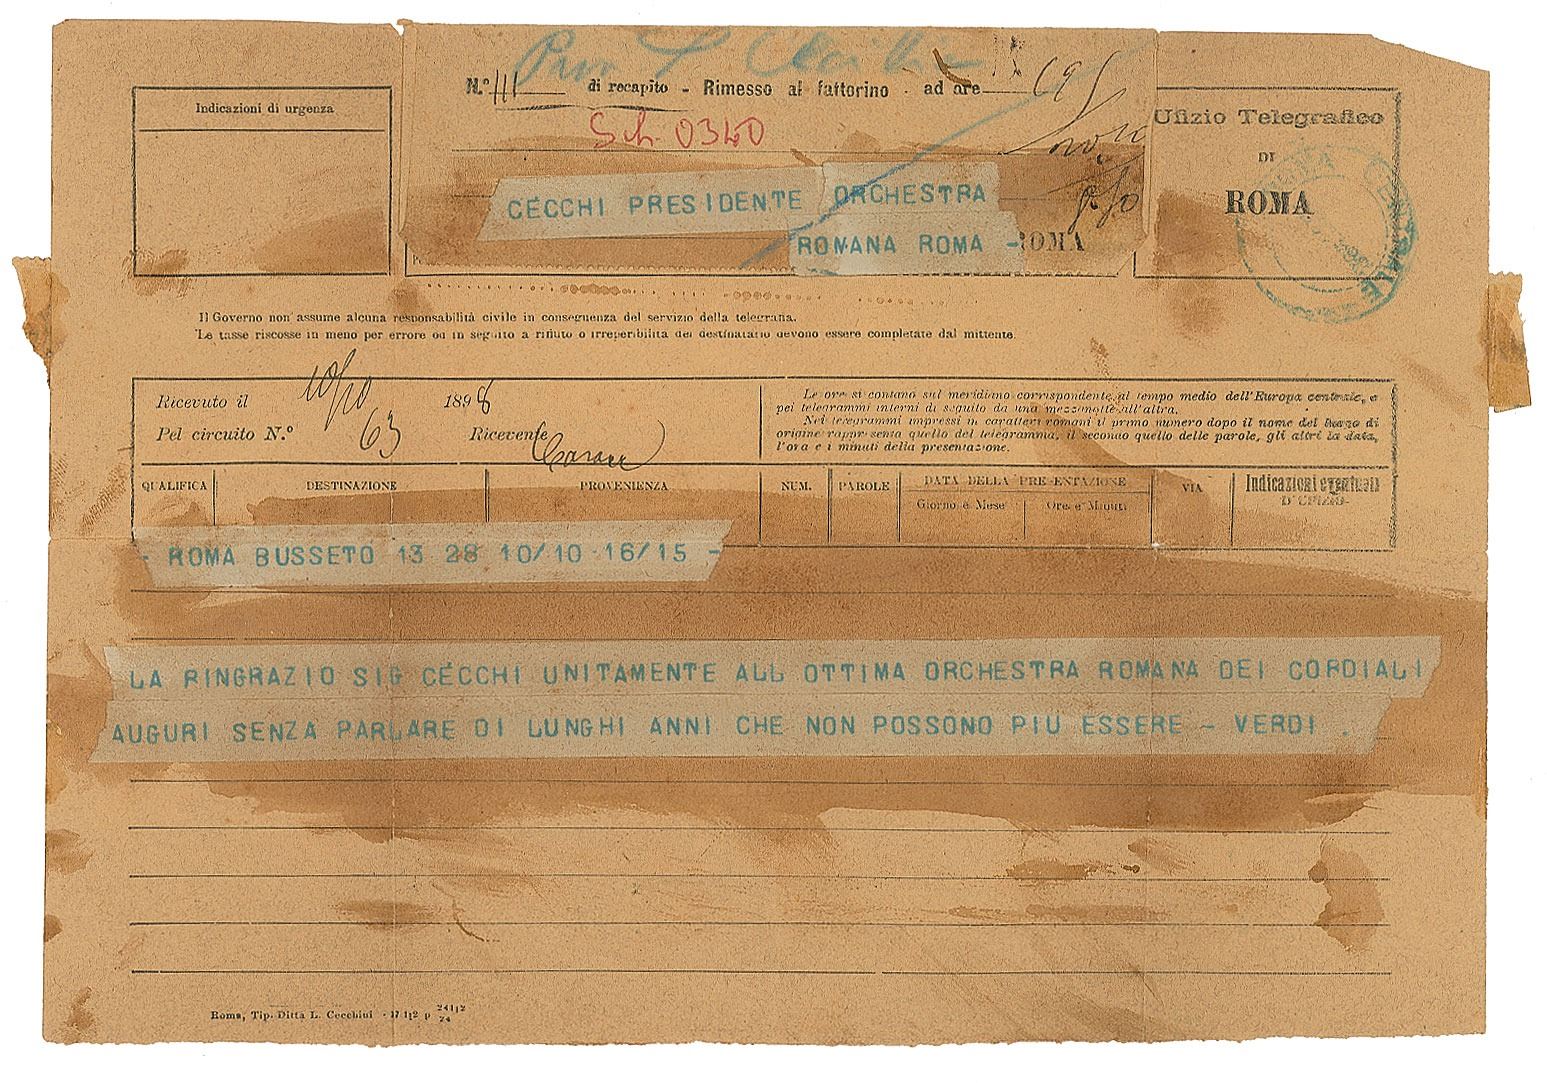 N.º 111 di recapito - Rimesso al fattorino - ad ore
Sch 0340
Indicazioni di urgenza
Ufizio Telegrafico
DI
ROMA
CECCHI PRESIDENTE ORCHESTRA
ROMANA ROMA -
ROMA
CENTRALE
Il Governo non assume alcuna responsabilità civile in conseguenza del servizio della telegrafia.
Le tasse riscosse in meno per errore od in seguito a rifiuto o irreperibilità del destinatario devono essere completate dal mittente.
Ricevuto il 10/10 1898
Pel circuito N.º 63 Ricevente
Le ore si contano sul meridiano corrispondente al tempo medio dell'Europa centrale, e
pei telegrammi interni di seguito da una mezzanotte all'altra.
Nei telegrammi impressi in caratteri romani il primo numero dopo il nome del luogo di
origine rappresenta quello del telegramma, il secondo quello delle parole, gli altri la data,
l'ora e i minuti della presentazione.
QUALIFICA DESTINAZIONE PROVENIENZA NUM. PAROLE DATA DELLA PRESENTAZIONE VIA Indicazioni eventuali
D'UFIZIO
Giorno e Mese Ore e Minuti
- ROMA BUSSETO 13 28 10/10 16/15 -
LA RINGRAZIO SIG CECCHI UNITAMENTE ALL OTTIMA ORCHESTRA ROMANA DEI CORDIALI
AUGURI SENZA PARLARE DI LUNGHI ANNI CHE NON POSSONO PIU ESSERE - VERDI .
Roma, Tip. Ditta L. Cecchini - 17 1|2 p 24 1|2
24